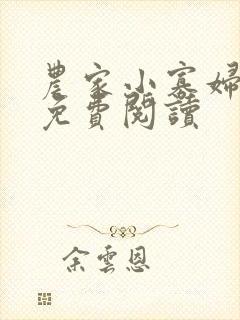 農家小寡婦
免費閱讀
余雲恩